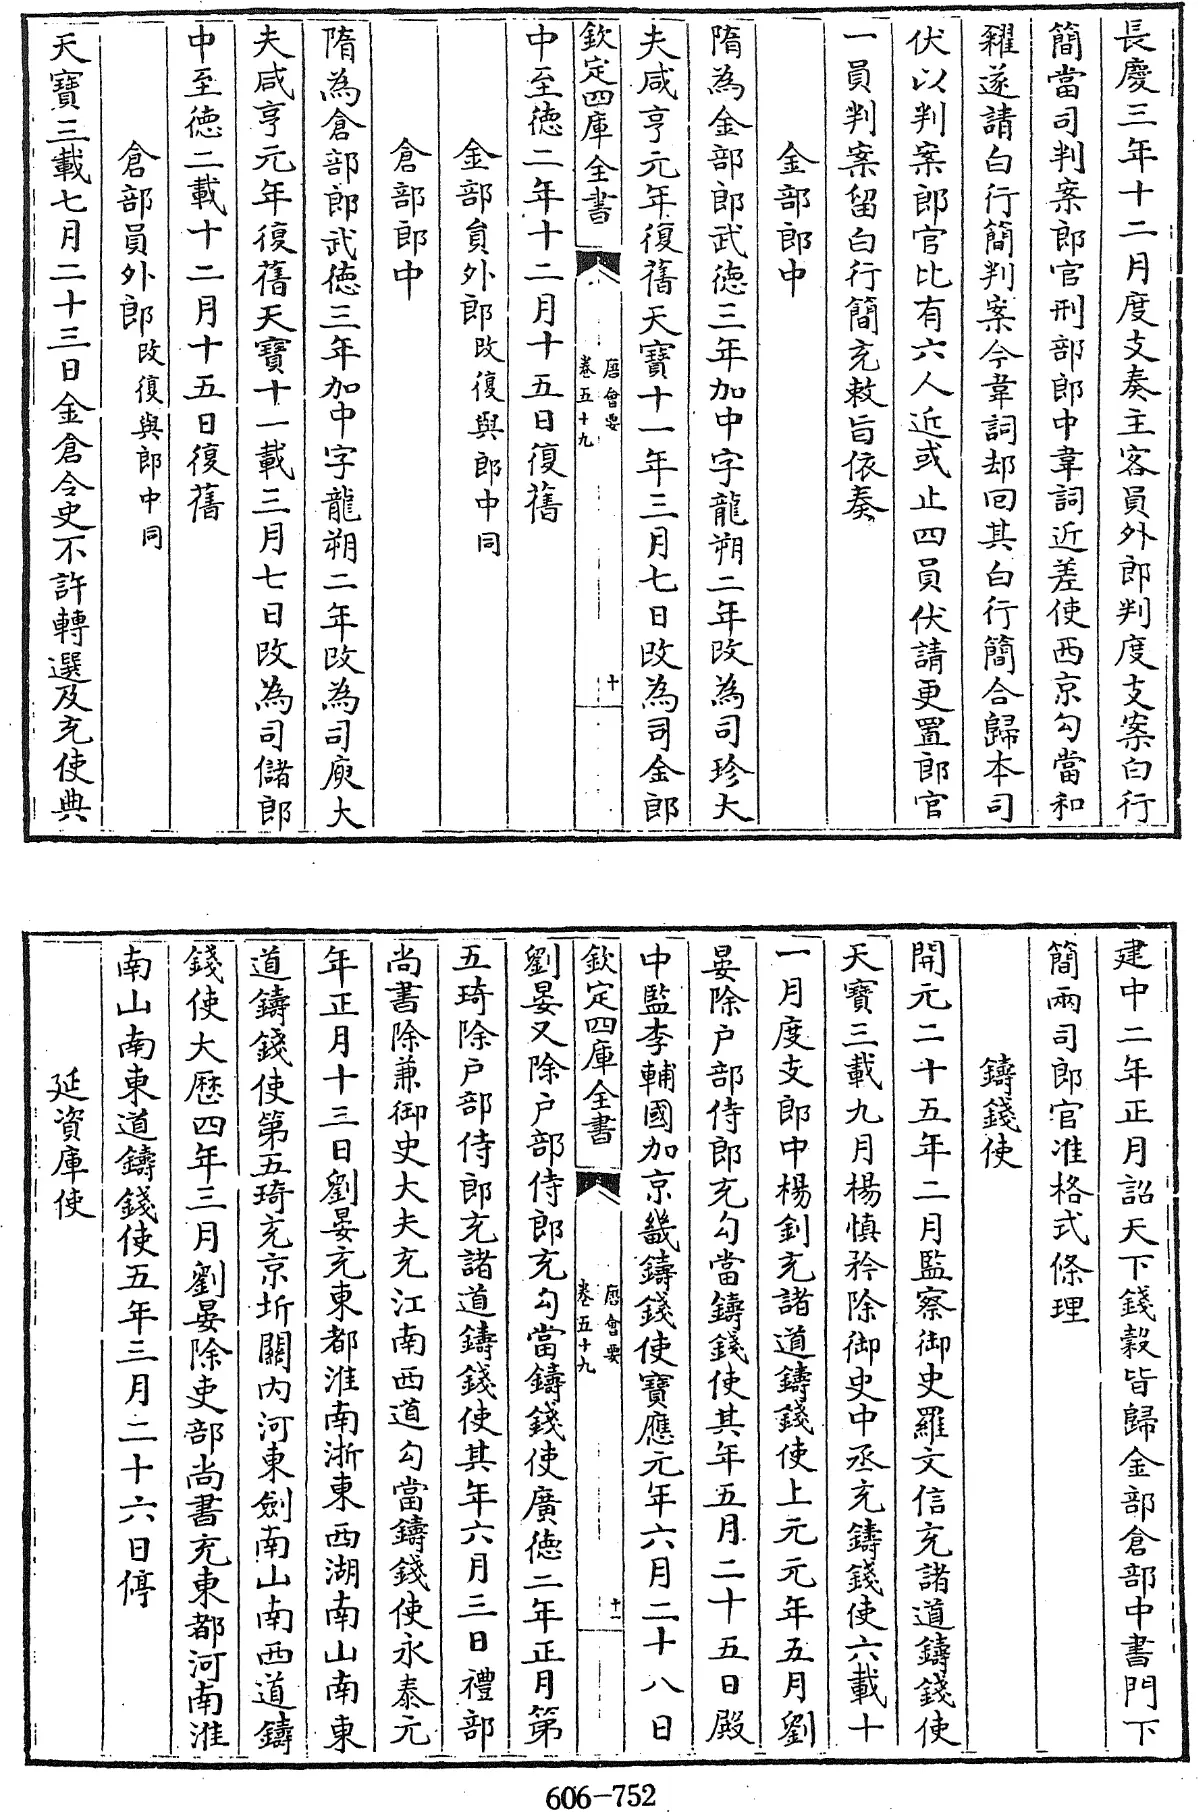 長慶三年十二月度支奏主客員外郎判度支案白行
簡當司判案郎官刑部郎中韋詞近差使西京勾當和
糴遂請白行簡判案今韋詞却回其白行簡合歸本司
伏以判案郎官比有六人近或止四員伏請更置郎官
一員判案留白行簡充敕旨依奏
金部郎中
隋為金部郎武德三年加中字龍朔二年改為司珍大
夫咸亨元年復舊天寶十一年三月七日改為司金郎
欽定四庫全書
唐會要
卷五十九
十
中至德二年十二月十五日復舊
金部員外郎改復與郎中同
倉部郎中
隋為倉部郎武德三年加中字龍朔二年改為司庾大
夫咸亨元年復舊天寶十一載三月七日改為司儲郎
中至德二載十二月十五日復舊
倉部員外郎改復與郎中同
天寶三載七月二十三日金倉令史不許轉選及充使典
建中二年正月詔天下錢穀皆歸金部倉部中書門下
簡兩司郎官准格式條理
鑄錢使
開元二十五年二月監察御史羅文信充諸道鑄錢使
天寶三載九月楊慎矜除御史中丞充鑄錢使六載十
一月度支郎中楊釗充諸道鑄錢使上元元年五月劉
晏除户部侍郎充勾當鑄錢使其年五月二十五日殿
中監李輔國加京畿鑄錢使寶應元年六月二十八日
欽定四庫全書
唐會要
卷五十九
十一
劉晏又除户部侍郎充勾當鑄錢使廣德二年正月第
五琦除户部侍郎充諸道鑄錢使其年六月三日禮部
尚書除兼御史大夫充江南西道勾當鑄錢使永泰元
年正月十三日劉晏充東都淮南浙東西湖南山南東
道鑄錢使第五琦充京圻關内河東劍南山南西道鑄
錢使大歴四年三月劉晏除吏部尚書充東都河南淮
南山南東道鑄錢使五年三月二十六日停
延資庫使
606-752